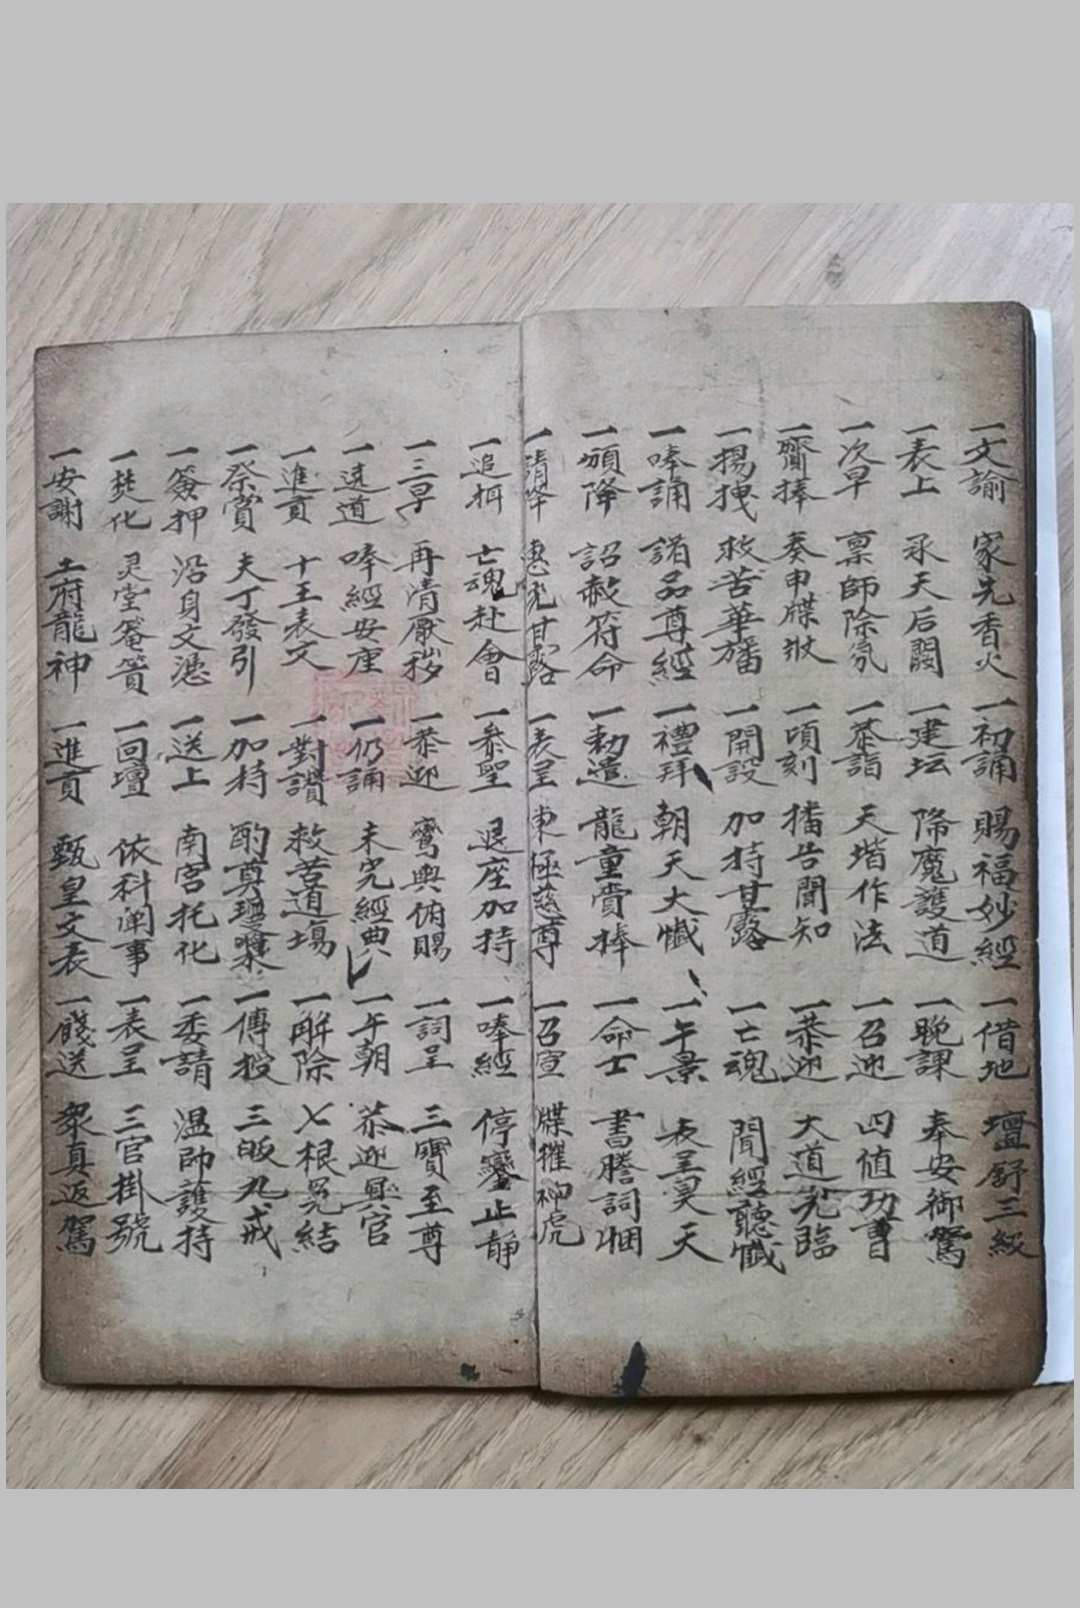 一文諭 家先香火 一初誦 賜福妙經 一借地 壇舒三級
一表上 承天后闕 一建坛 降魔護道 一晚課 奉安御駕
一次早 禀師除氛 一恭詣 天堦作法 一召迎 四值功曹
一齎捧 奏申牒狀 一頃刻 播告聞知 一恭迎 大道光臨
一揚拽 救苦華旛 一開設 加持甘露 一亡魂 聞經聽懺
一唪誦 諸品尊經 一禮拜 朝天大懺 一午景 表呈昊天
一頒降 詔赦符命 一勅遣 龍童賫捧 一命士 書謄詞悃
一請降 惠光甘露 一表呈 東極慈尊 一召宣 牒攉神虎
一追捐 亡魂赴會 一叅聖 退座加持 一唪經 停鑾止静
一三早 再清厭穢 一恭迎 鸞輿俯賜 一詞呈 三寶至尊
一遶道 唪經安座 一仍誦 未完經典 一午朝 恭迎真官
一進貢 十王表文 一對讚 救苦道塲 一解除 七根冤結
一祭賞 夫丁發引 一加持 酌奠瓊漿 一傳授 三皈九戒
一簽押 沿身文憑 一送上 南宮托化 一委請 温帥護持
一焚化 灵堂篭簣 一回壇 依科阐事 一表呈 三官掛號
一安謝 土府龍神 一進貢 甄皇文表 一餞送 衆真返駕